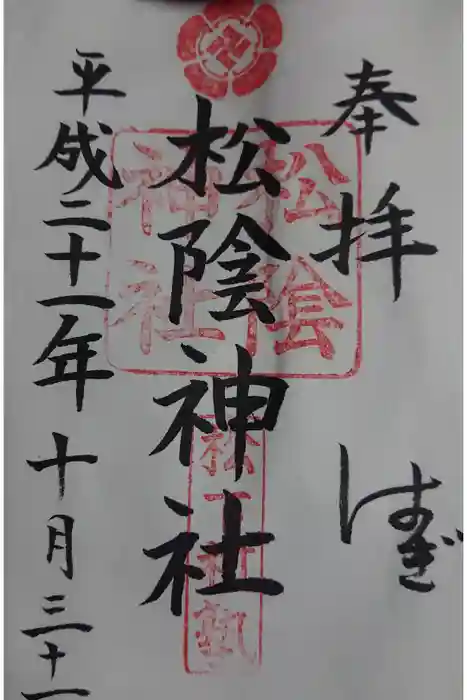 奉拝
はぎ
松陰神社
松陰
神社
松下村塾
平成二十一年十月三十一